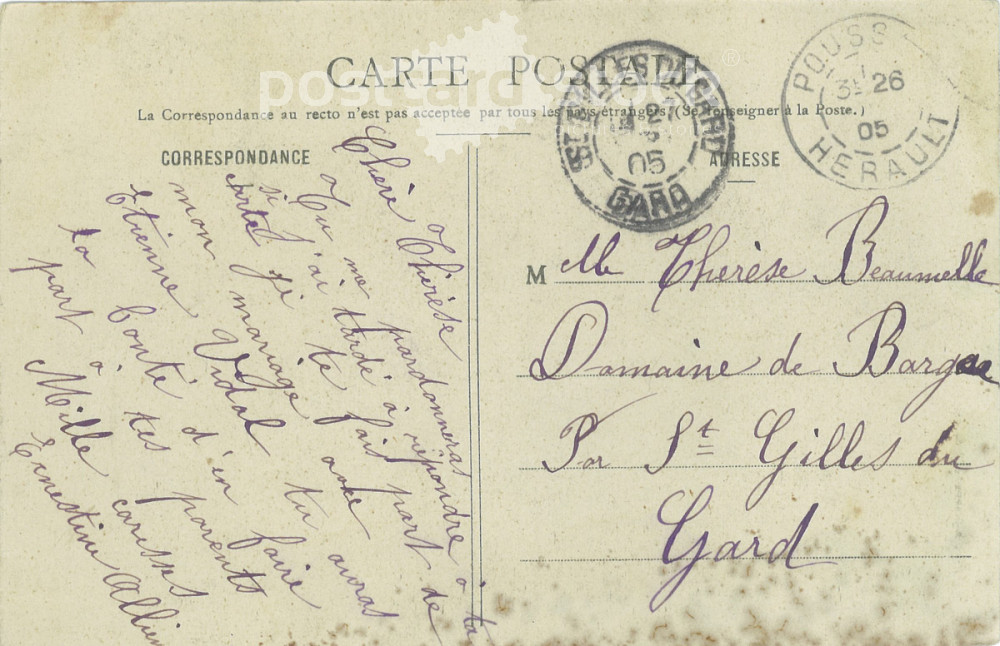 CARTE POSTALE
La Correspondance au recto n'est pas acceptée par tous les pays étrangers. (Se renseigner à la Poste.)
CORRESPONDANCE
ADRESSE
Chère Thérèse
Tu me pardonneras
si j'ai tardé à répondre à ta
carte je te fais part de
mon mariage avec
Etienne Vidal tu auras
la bonté d'en faire
part à tes parents
Mille caresses
Ernestine
M elle Thérèse Beaumelle
Domaine de
Par St Gilles du
Gard
ST GILLES DU GARD
05
GARD
POUSS
26
05
HERAULT